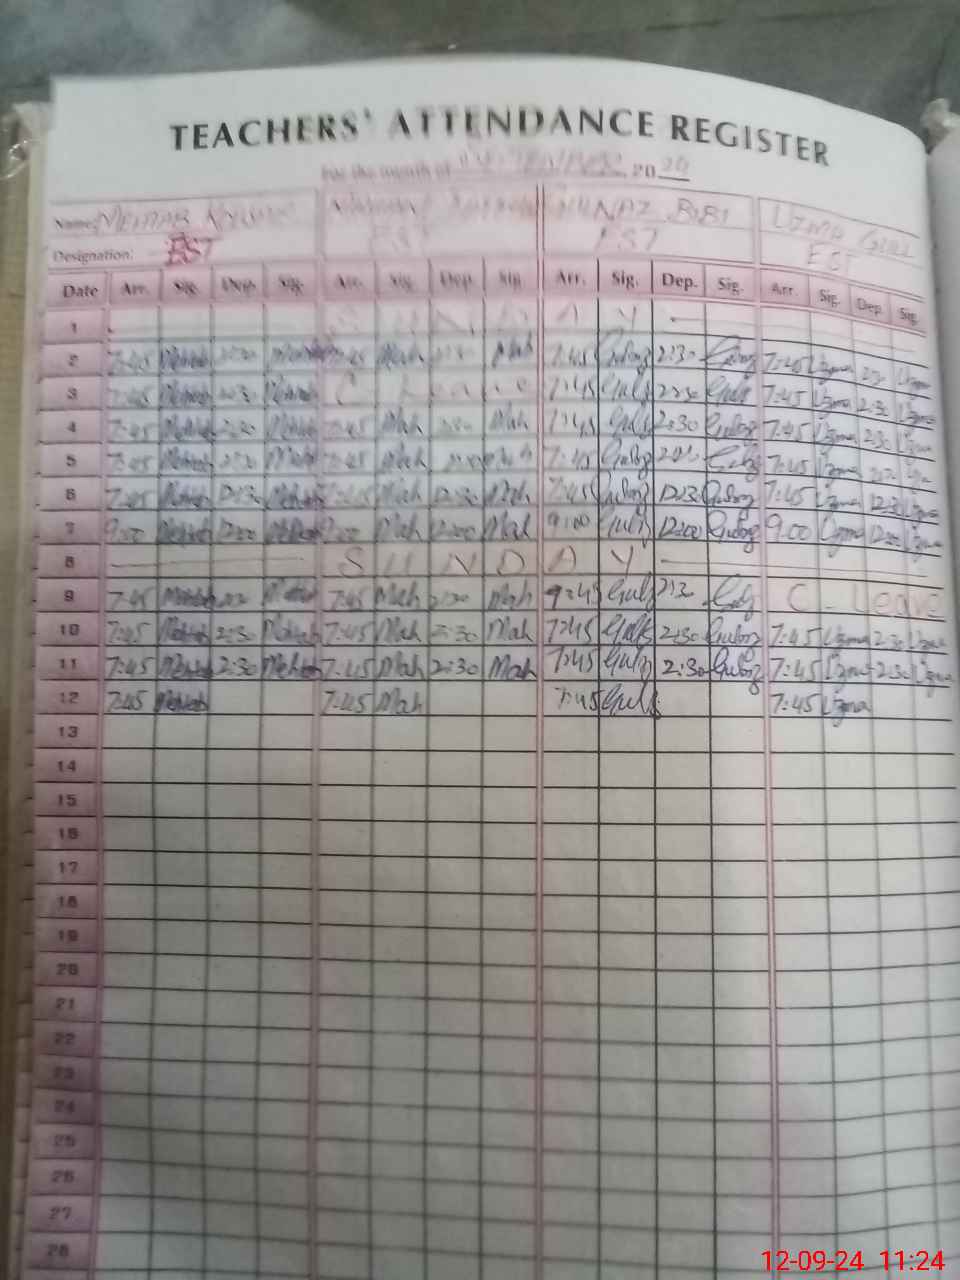 TEACHERS' ATTENDANCE REGISTER
For the month of 2024
Name: MEHTAB NAZ BIBI UZMA GULL
Designation: EST EST EST EST
Date Arr. Sig. Dep. Sig. Arr. Sig. Dep. Sig. Arr. Sig. Dep. Sig. Arr. Sig. Dep. Sig.
1 S U N D A Y
2 7:45 Mehtab 2:30 7:45 Mah 2:30 Mah 7:45 Gulnaz 2:30 Gulnaz 7:45 Uzma 2:30 Uzma
3 7:45 Mehtab 2:30 Mehtab C. Leave 7:45 2:30 7:45 Uzma 2:30 Uzma
4 7:45 Mehtab 2:30 Mehtab 7:45 Mah 2:30 Mah 7:45 2:30 7:45 Uzma 2:30 Uzma
5 7:45 Mehtab 2:30 7:45 Mah Mah 7:45 7:45 Uzma
6 7:45 Mehtab 12:30 Mehtab 7:45 Mah 12:30 Mah 7:45 12:30 7:45 Uzma 12:30 Uzma
7 9:00 Mehtab 12:00 Mehtab 9:00 Mah 12:00 Mah 9:00 12:00 9:00 Uzma 12:00 Uzma
8 S U N D A Y
9 7:45 Mehtab 2:30 Mehtab 7:45 Mah 2:30 Mah 2:30 C. Leave
10 7:45 Mehtab 2:30 Mehtab 7:45 Mah 2:30 Mah 7:45 2:30 7:45 Uzma 2:30 Uzma
11 7:45 Mehtab 2:30 Mehtab 7:45 Mah 2:30 Mah 7:45 2:30 7:45 Uzma 2:30 Uzma
12 7:45 Mehtab 7:45 Mah 7:45 7:45 Uzma
13
14
15
16
17
18
19
20
21
22
23
24
25
26
27
28
12-09-24 11:24